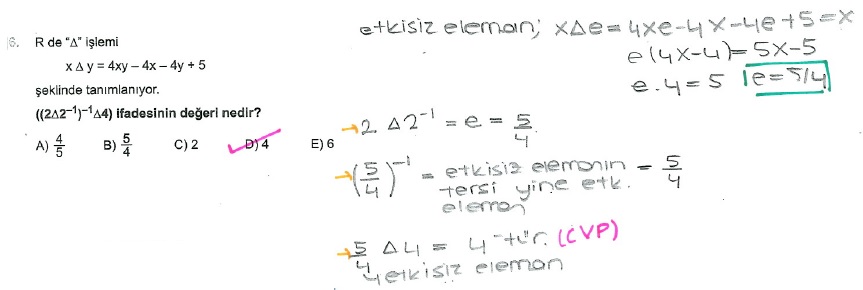 6. R de "Δ" işlemi
x Δ y = 4xy – 4x – 4y + 5
şeklinde tanımlanıyor.
((2Δ2⁻¹)⁻¹Δ4) ifadesinin değeri nedir?
A) 4/5 B) 5/4 C) 2 D) 4 E) 6
etkisiz eleman; xΔe = 4xe-4x-4e+5 = x
e(4x-4) = 5x-5
e.4 = 5 e = 5/4
→ 2 Δ2⁻¹ = e = 5/4.
→ (5/4)⁻¹ = etkisiz elemanın = 5/4
tersi yine etk.
eleman
→ 5/4 Δ4 = 4-tür. (CVP)
etkisiz eleman